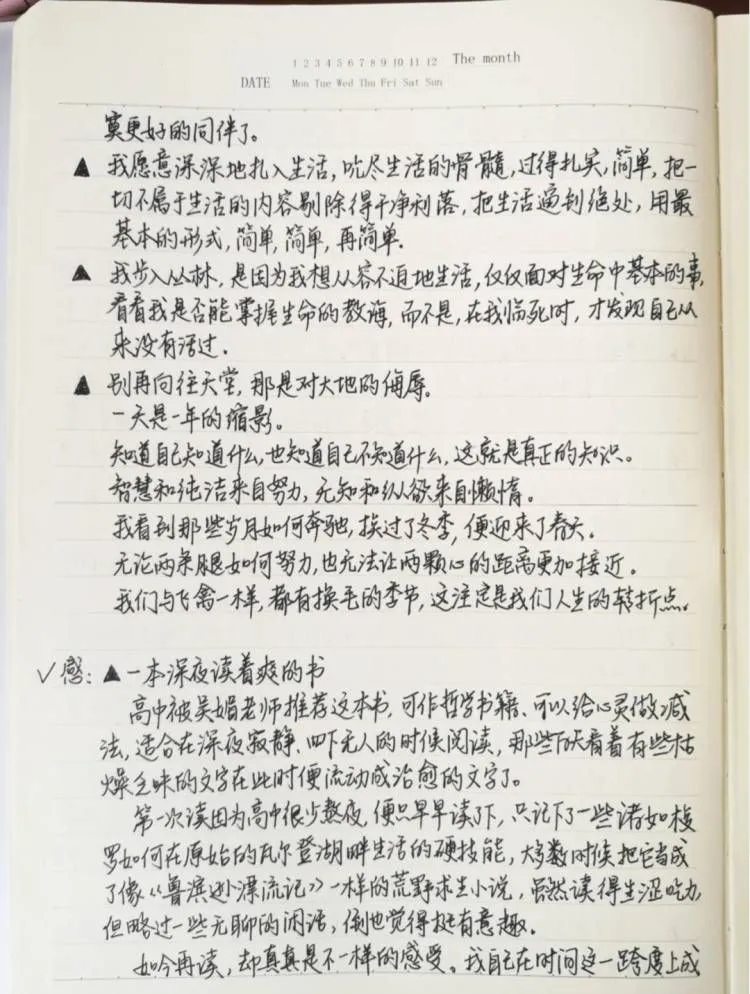 1 2 3 4 5 6 7 8 9 10 11 12 The month
DATE Mon Tue Wed Thu Fri Sat Sun
寞更好的同伴了。
▲ 我愿意深深地扎入生活，吮尽生活的骨髓，过得扎实，简单，把一
切不属于生活的内容剔除得干净利落，把生活逼到绝处，用最
基本的形式，简单，简单，再简单．
▲ 我步入丛林，是因为我想从容不迫地生活，仅仅面对生命中基本的事，
看看我是否能掌握生命的教诲，而不是，在我临死时，才发现自己从
来没有活过．
▲ 别再向往天堂，那是对大地的侮辱。
一天是一年的缩影。
知道自己知道什么，也知道自己不知道什么，这就是真正的知识。
智慧和纯洁来自努力，无知和纵欲来自懒惰。
我看到那些岁月如何奔驰，挨过了冬季，便迎来了春天．
无论两条腿如何努力，也无法让两颗心的距离更加接近。
我们与飞禽一样，都有换毛的季节，这注定是我们人生的转折点。
✓感：▲一本深夜读着爽的书
高中被吴媚老师推荐这本书，可作哲学书籍、可以给心灵做减
法，适合在深夜寂静、四下无人的时候阅读，那些白天看着有些枯
燥乏味的文字在此时便流动成治愈的文字了。
第一次读因为高中很少熬夜，便只早早读下，只记下了一些诸如梭
罗如何在原始的瓦尔登湖畔生活的硬技能，大多数时候把它当成
了像《鲁滨逊漂流记》一样的荒野求生小说，虽然读得生涩吃力，
但略过一些无聊的闲话，倒也觉得挺有意趣。
如今再读，却真真是不一样的感受。我自己在时间这一跨度上成